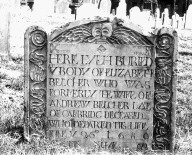 HERE LYETH BURIED
Y BODY OF ELIZABETH
BELCHER WHO WAS
FORMERLY THE WIFE OF
ANDREW BELCHER LATE
OF CAMBRIDG DECEASED
WHO DEPARTED THIS LIFE